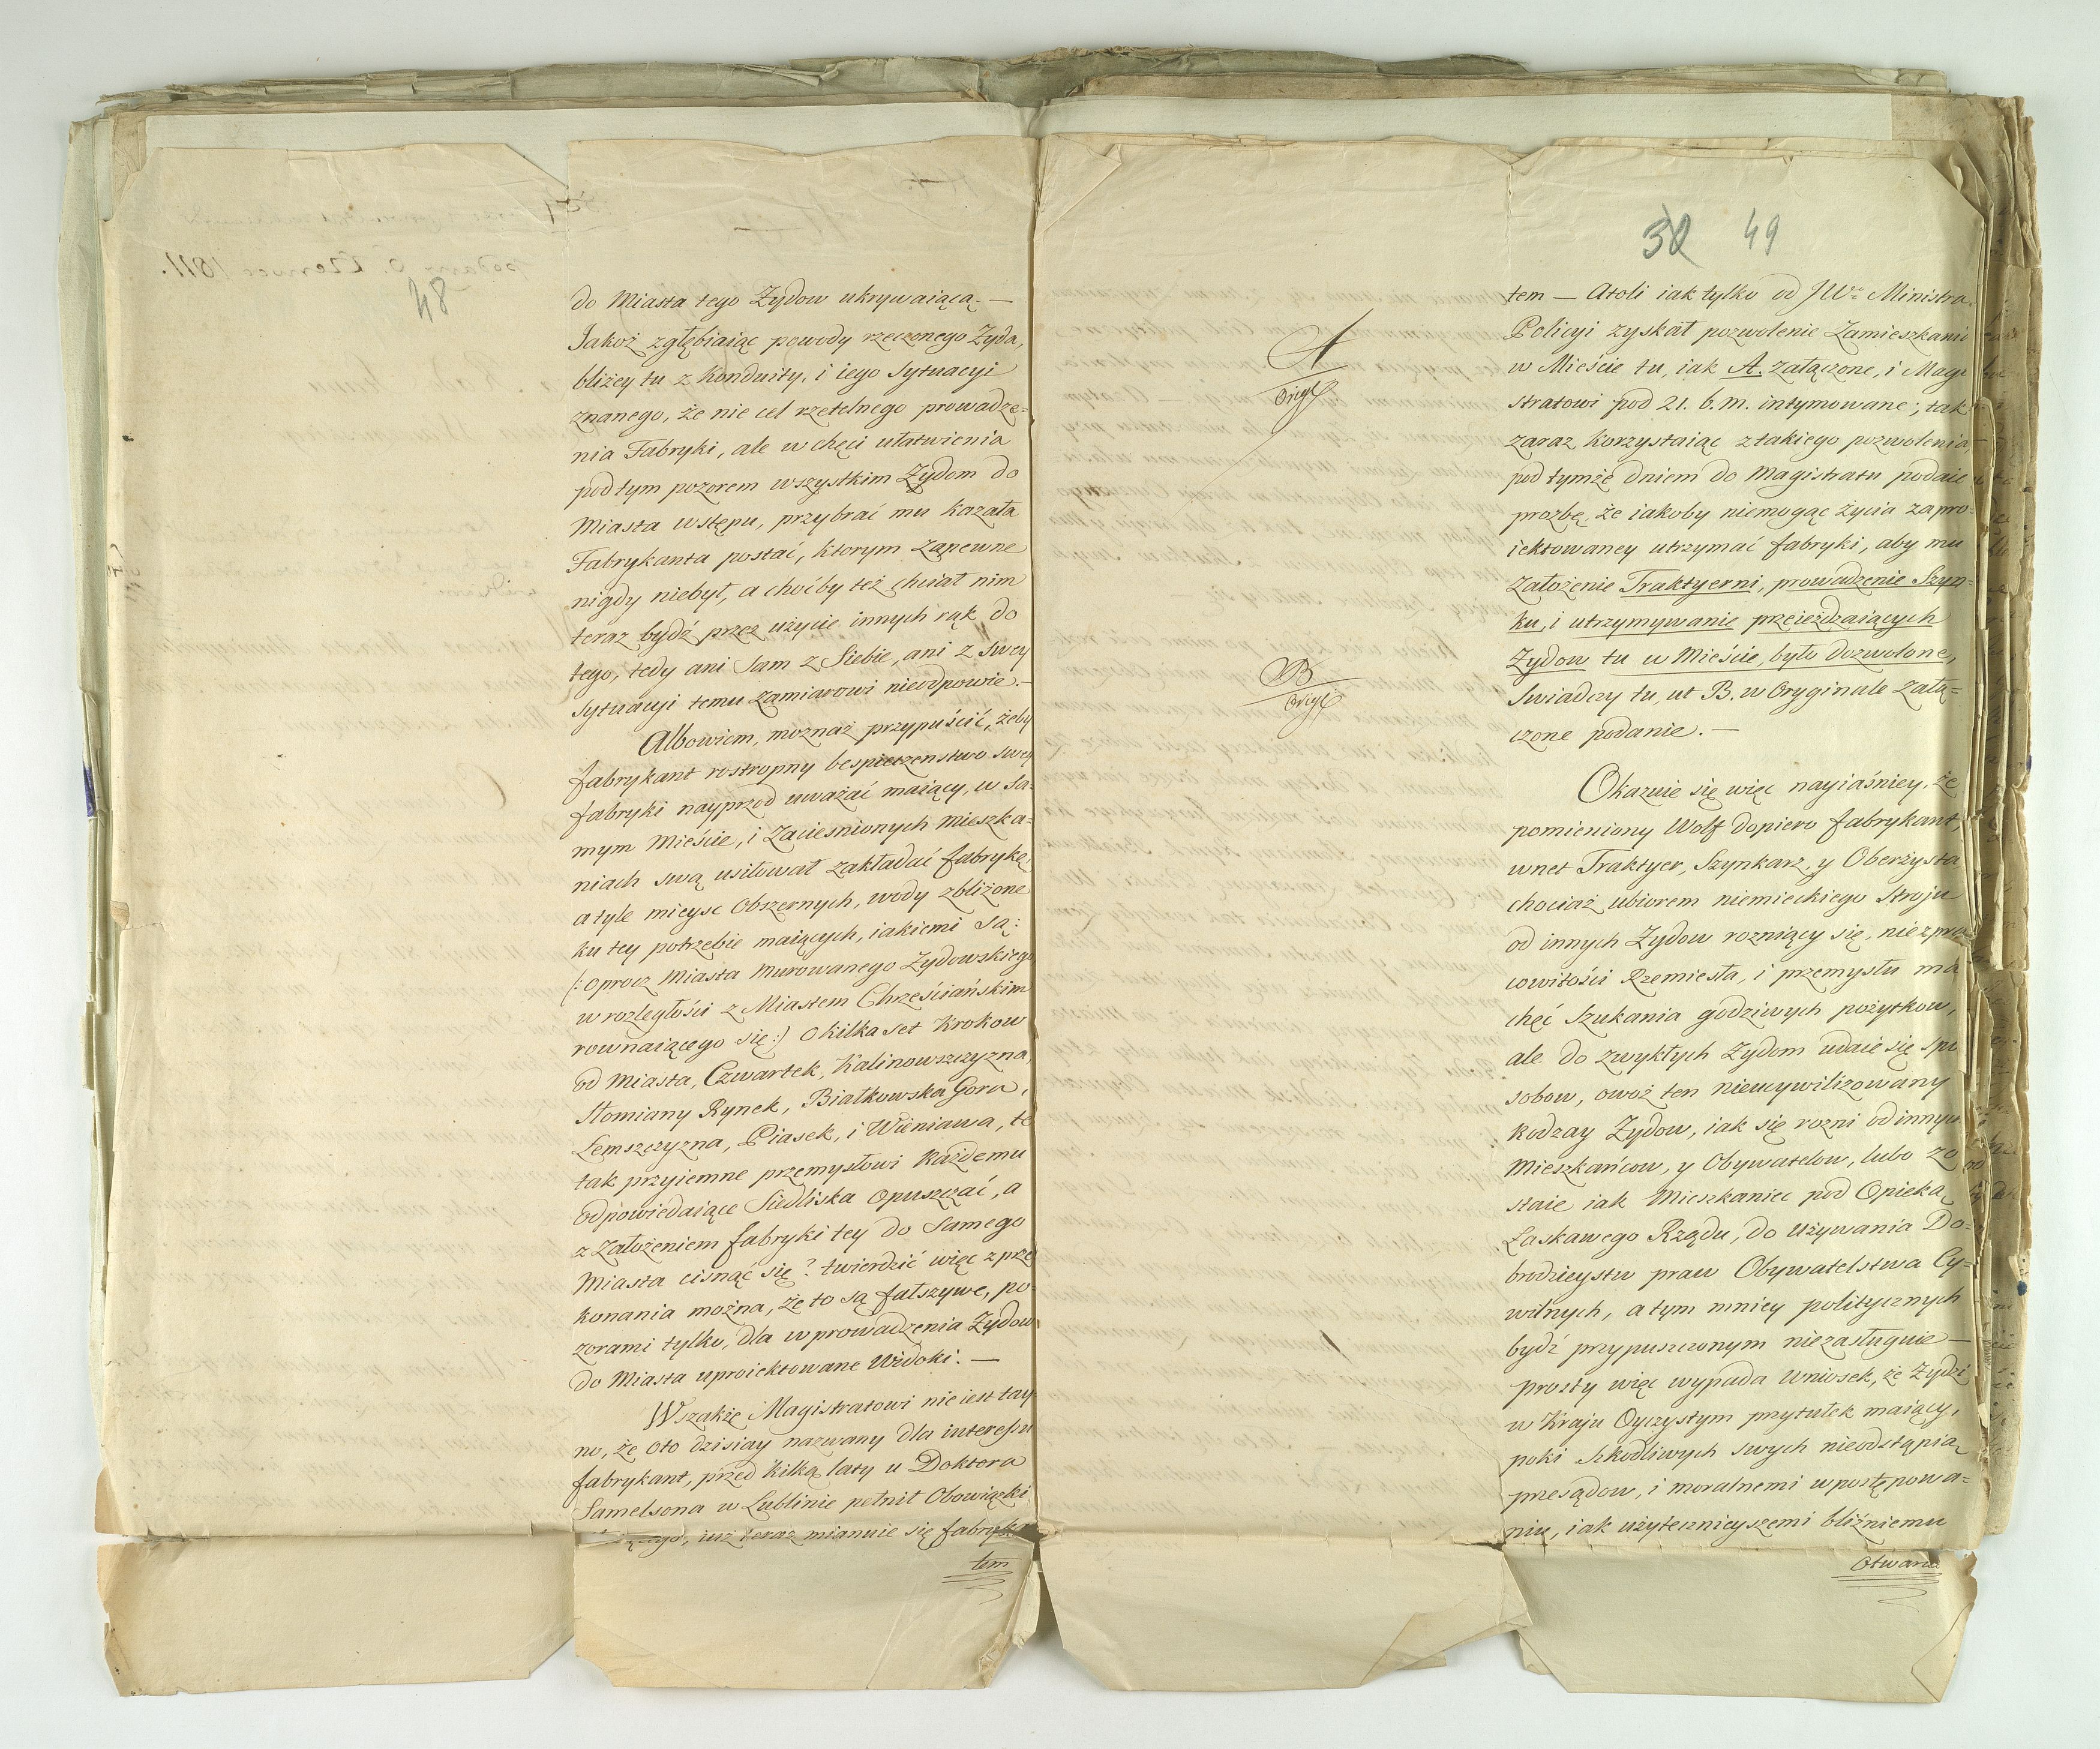 48
do Miasta tego Żydow ukrywaiącą. —
Jakoż zgłębiaiąc powody rzeczonego Żyda,
bliżey tu z Konduity, i iego Sytuacyi
znanego, że nie cel rzetelnego prowadze=
nia Fabryki, ale w chęci ułatwienia
pod tym pozorem wszystkim Żydom do
Miasta wstępu, przybrać mu kazała
Fabrykanta postać, ktorym zapewne
nigdy niebył, a choćby też chciał nim
teraz bydź przez użycie innych rąk do
tego, tedy ani Sam z Siebie, ani z Swey
Sytuacyi temu zamiarowi nieodpowie. —
Albowiem, możnaż przypuścić, żeby
fabrykant rostropny bespieczenstwo swey
fabryki nayprzod uważać maiący, w Sa=
mym Mieście, i Zaciesnionych mieszka=
niach swą usiłował zakładać fabrykę,
a tyle mieysc Obszernych, wody zbliżone
ku tey potrzebie maiących, iakiemi Są:
(: oprocz Miasta Murowanego Żydowskiego
w rozległości z Miastem Chrześciańskim
rownaiącego się :) o kilka set Krokow
od Miasta, Czwartek, Kalinowszczyzna,
Słomiany Rynek, Białkowska Gora,
Lemszczyzna, Piasek, i Wieniawa, te
tak przyiemne przemysłowi Każdemu
odpowiedaiące Siedliska opuszczać, a
z Założeniem fabryki tey do Samego
Miasta cisnąć się? twierdzić więc z prze
konania można, że to są fałszywe, po=
zorami tylko, dla wprowadzenia Żydow
do Miasta uproiektowane Widoki. —
Wszakże Magistratowi nie iest tay
no, że oto dzisiay nazwany dla interessu
fabrykant, przed kilką laty u Doktora
Samelsona w Lublinie pełnił Obowiązki
iuż teraz mianuie się fabrykan
tem
30 49
A
Origl
B
Origl
tem — Atoli iak tylko od JWo Ministra
Policyi zyskał pozwolenie Zamieszkania
w Mieście tu, iak A. załączone, i Magi
stratowi pod 21. b. m. intymowane; tak
zaraz korzystaiąc z takiego pozwolenia,
pod tymże dniem do Magistratu podaie
prozbę, że iakoby niemogąc życia zapro=
iektowaney utrzymać fabryki, aby mu
Założenie Traktyerni, prowadzenie Szyn=
ku, i utrzymywanie przeieżdzaiących
Żydow tu w Mieście, było dozwolone,
Swiadczy tu, ut B. w Oryginale załą=
czone podanie. —
Okazuie się więc nayiaśniey, że
pomieniony Wolf dopiero fabrykant,
wnet Traktyer, Szynkarz, y Oberżysta
chociaż ubiorem niemieckiego Stroju
od innych Żydow rozniący się, nie z pra
cowitości Rzemiesła, i przemysłu ma
chęć Szukania godziwych pożytkow,
ale do zwykłych Żydom udaie się spo
sobow, owoż ten nieucywilizowany
Rodzay Żydow, iak się rozni od innych
Mieszkańcow, y Obywatelow, lubo zo
staie iak Mieszkaniec pod Opieką
Łaskawego Rządu, do używania Do=
brodzieystw praw Obywatelstwa Cy=
wilnych, a tym mniey politycznych
bydź przypuszczonym niezasługuie —
prosty więc wypada Wniosek, że Żydzi
w Kraju Oyczystym przytułek maiący,
poki Szkodliwych swych nieodstąpią
przesądow, i moralnemi w postępowa=
niu, iak użytecznieyszemi bliźniemu
Otwarte